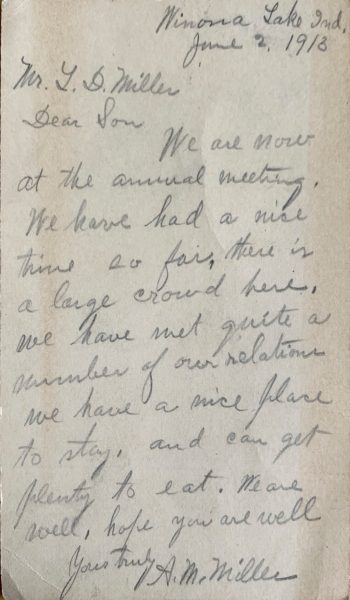 Winona Lake Ind.
June 2, 1913
Mr. L. D. Miller
Dear Son
We are now
at the annual meeting.
We have had a nice
time so far, there is
a large crowd here,
we have met quite a
number of our relations
we have a nice place
to stay, and can get
plenty to eat. We are
well, hope you are well
Yours truly A. M. Miller